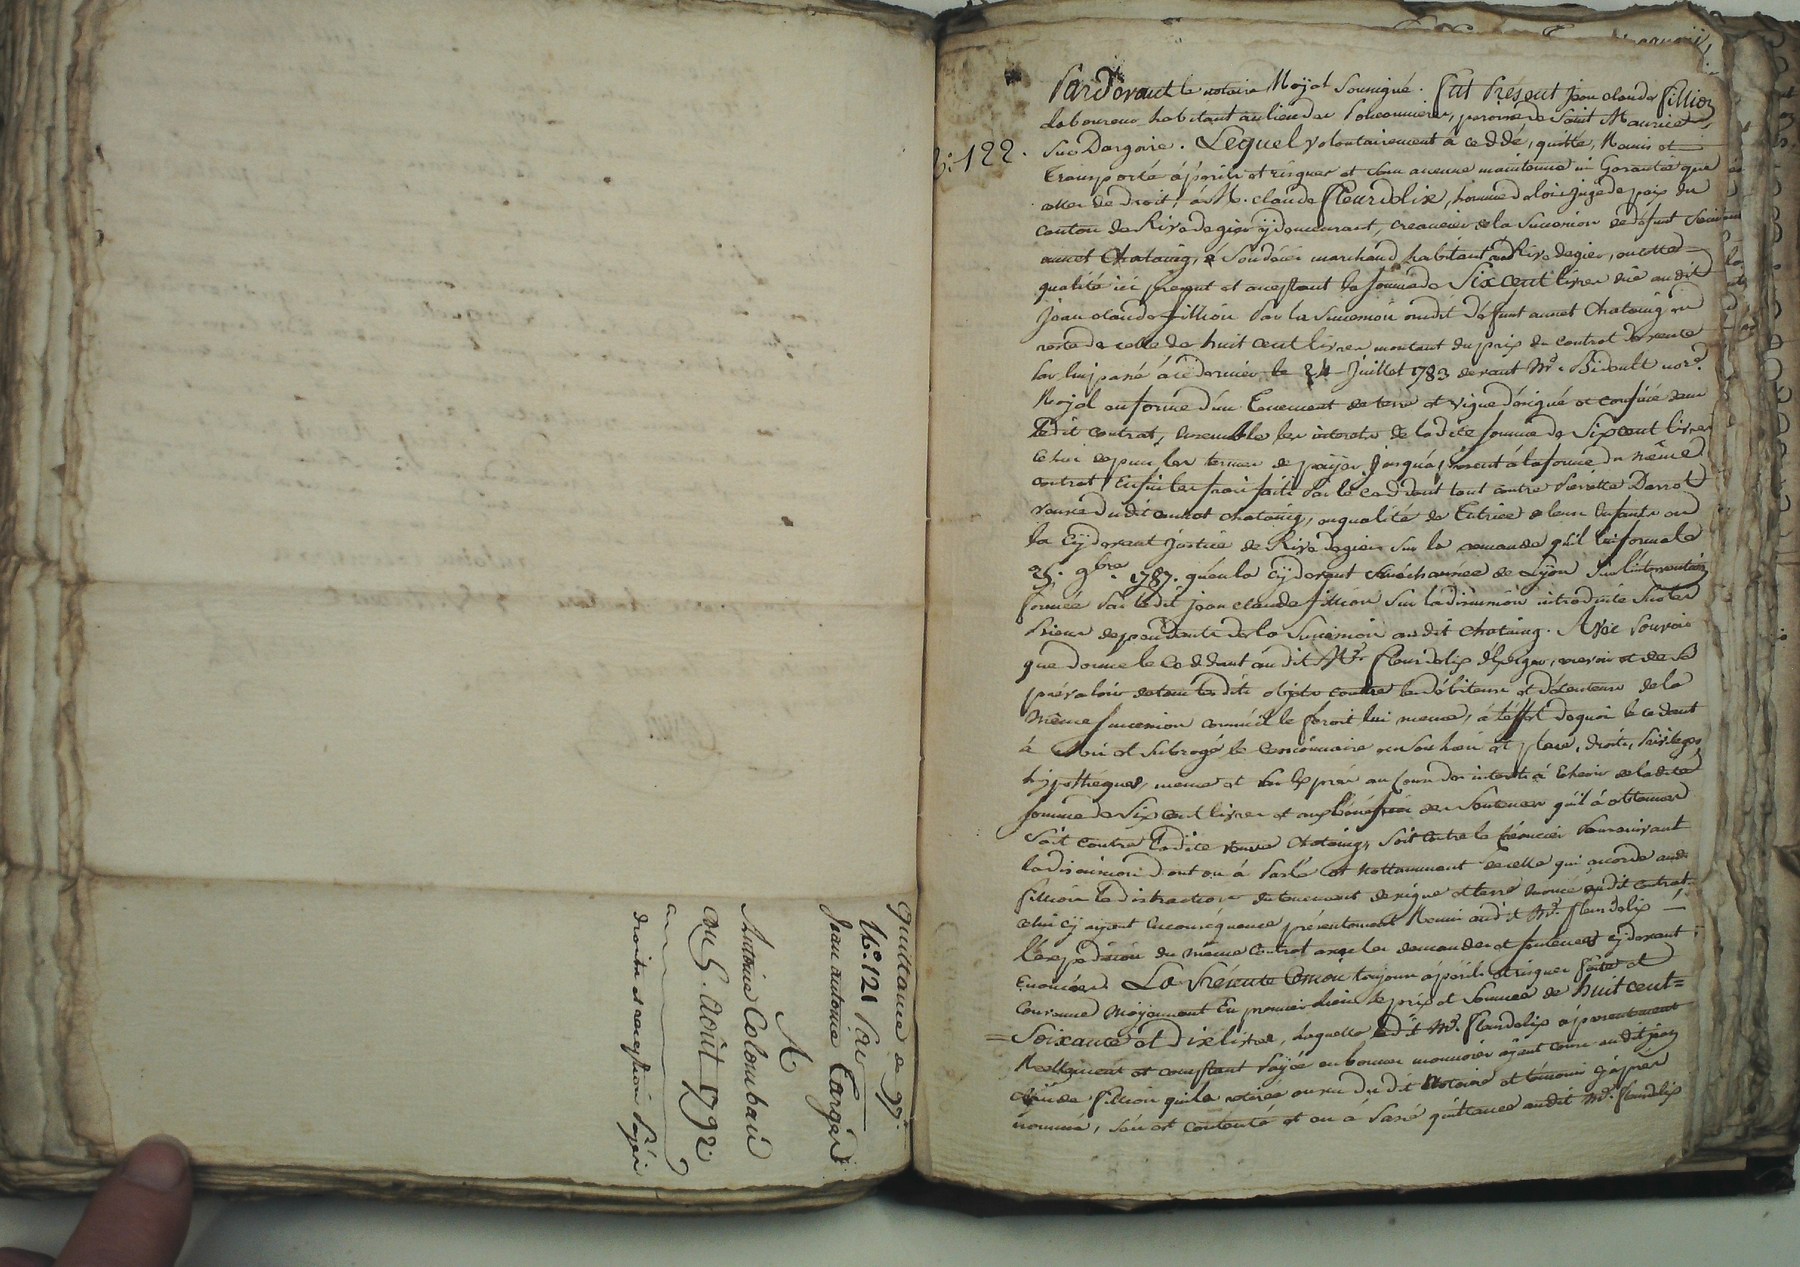 Quittance de 97#.
N°: 121 Par
Jean antoine Targe
A
Antoine Colombau
au 5. août 1792.
droits et reception Payés
N: 122.
Pardevant le notaire Royal Soussigné. fut Présent Jean claude fillion
Laboureur habitant au lieu de la Poissonniere, paroisse de Saint Maurice
sur Dargoire. Lequel volontairement à ceddé, quitté, Remis et
transporté à périls et risques et sans aucune maintenue ni Garantie que
celles de droit, à M. claude fleurdelix, homme de loi juge de paix du
canton de Rivedegier y demeurant, creancier de la Succession de défunt Sieur
annet Chataing, marchand habitant à Rivedegier, en cette
qualité ici present et acceptant la somme de Six cent livres düe audit
Jean claude fillion Par la Succession dudit défunt annet Chataing en
reste de celle de huit cent livres montant du prix du contrat de vente
Par lui passé à ce dernier le 24 Juillet 1783 devant Me. Bidault nore.
Royal en forme d'un Tenement de terre et vigne désigné et confiné dans
ledit contrat, Ensemble les interets de ladite somme de Six cent livres
échus depuis les termes de payer Jusqu'à présent à la forme du même
contrat, Enfin les frais faits Par le ceddant tant contre Pierrette Derrot
veuve dudit annet chataing, en qualité de Tutrice de leurs Enfants en
la Cydevant Justice de Rivedegier sur la demande qu'il lui forma le
25. 9bre. 1787. qu'en la cydevant Sénéchaussée de Lyon sur l'intervention
formée Par ledit jean claude fillion Sur la discussion introduite Sur les
Biens dependants de la Succession dudit chataing. Avec Pouvoir
que donne le Ceddant audit Mr. fleurdelix d'Exiger, recevoir et de se
prévaloir de tous lesdits objets contre les débiteurs et détenteurs de la
même Succession comme il le feroit lui meme, à l'effet de quoi le cedant
à mis et Subrogé le Cessionnaire en Son lieu et place, droits, Privileges,
hypotheques, meme et Par Exprès au Cours des interets à Echeoir de ladite
somme de Six cent livres et au Bénéfice des Sentences qu'il à obtenues
Soit contre ladite veuve chataing, Soit contre le créancier Poursuivant
la discussion dont on à Parlé et Nottamment de celle qui accorde audt.
fillion la distraction du tenement de vigne et terre énoncé audit contrat,
celui cy ayant En conséquence présentement Remis audit Mr. fleurdelix
l'expédition du même Contrat avec les demandes et sentences cydevant
Enoncées. La Présente Cession toujours à périls et risques faite et
Convenue Moyennant En premier lieu le prix et Somme de huit cent=
=Soixante et dix livres, laquelle ledit Mr. fleurdelix à présentement
Reellement et comptant Payée en bonnes monnoies ayant cours audit jean
claude fillion qui la retirée au vu dudit Notaire et témoins cy après
nommés, s'en est contenté et en à Passé quittance audit Mr. fleurdelix